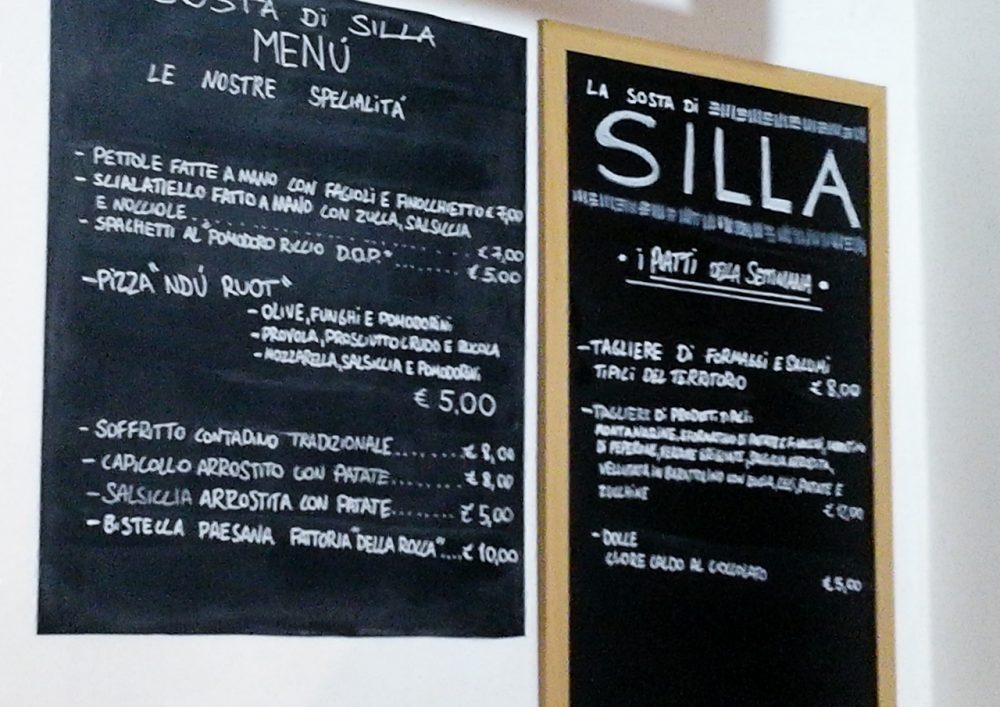 SOSTA Di SILLA
MENÚ
LE NOSTRE SPECIALITA'
- PETTOLE FATTE A MANO CON FAGIOLI E FINOCCHIETTO € 7,00
- SCIALATIELLO FATTO A MANO CON ZUCCA, SALSICCIA
E NOCCIOLE .............. € 7,00
- SPAGHETTI AL "POMODORO RICCIO D.O.P." ....... € 5.00
- PIZZA "NDÚ RUOT"
- OLIVE, FUNGHI E POMODORINI
- PROVOLA, PROSCIUTTO CRUDO E RUCOLA
- MOZZARELLA, SALSICCIA E POMODORINI
€ 5,00
- SOFFRITTO CONTADINO TRADIZIONALE........ € 8,00
- CAPICOLLO ARROSTITO CON PATATE........ € 8,00
- SALSICCIA ARROSTITA CON PATATE........ € 5,00
- BISTECCA PAESANA FATTORIA "DELLA ROCCA".... € 10,00
LA SOSTA Di
SILLA
• i PIATTI DELLA SETTIMANA •
- TAGLIERE Di FORMAGGI E SALUMI
TIPICI DEL TERRITORIO € 8,00
- TAGLIERE Di PRODOTTI TIPICI:
DI PEPERONE, VERDURE GRIGLIATE,
VELLUTATA IN CON ZUCCA, CECI, PATATE E
ZUCCHINE
€ 12,00
- DOLCE
CUORE CALDO AL CIOCCOLATO
€ 5,00